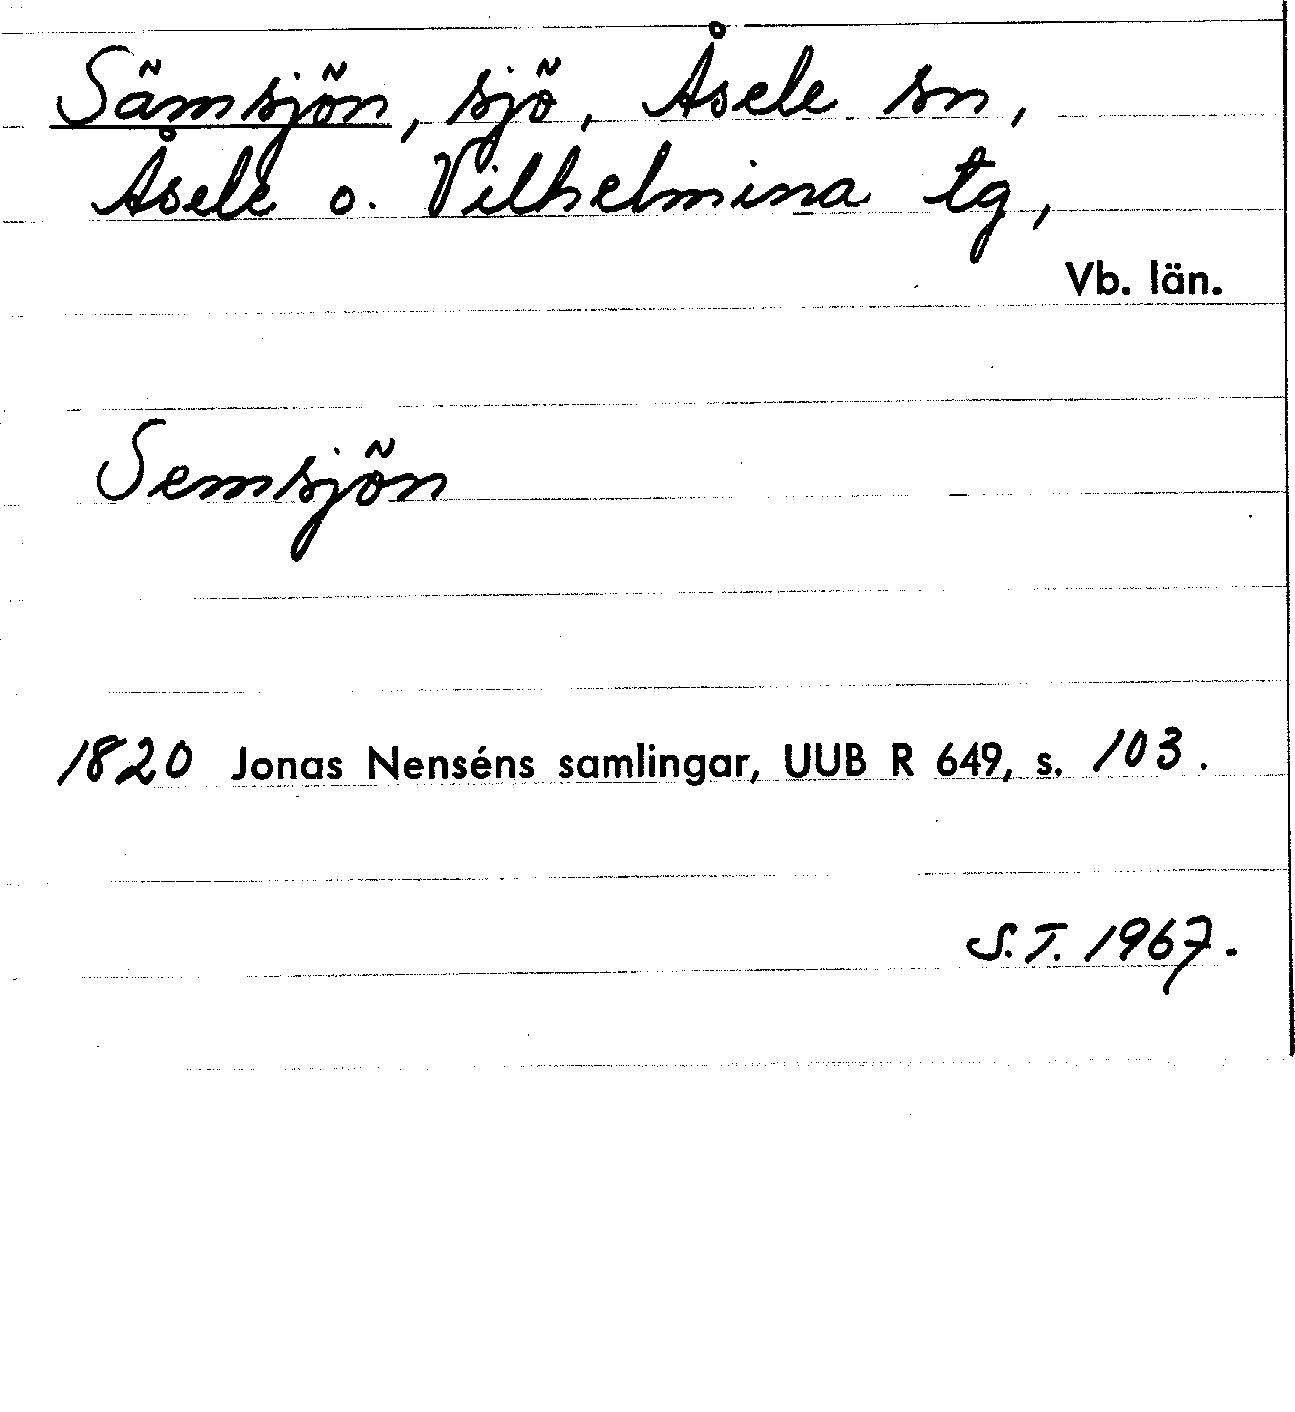 Sämsjön, sjö, Åsele sn,
Åsele o. Vilhelmina tg,
Vb. län.
Semsjön
1820 Jonas Nenséns samlingar, UUB R 649, s. 103.
S.T. 1967.